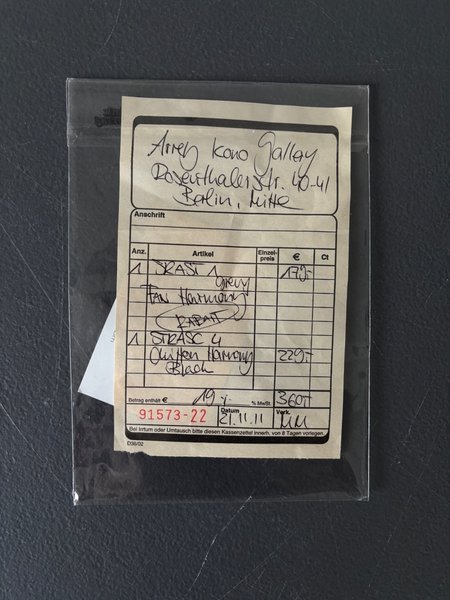 Kono Gallery
Rosenthaler str. 40-41
Berlin, Mitte
Anschrift
Anz. Artikel Einzel-preis € Ct
1 1
Grey
Harmony
RABATT
1 4 229.-
Harmony
Black
Betrag enthält € 19 % % MwSt. 360.-
91573-22 Datum 21.11.11 Verk. MM
Bei Irrtum oder Umtausch bitte diesen Kassenzettel innerh. von 8 Tagen vorlegen.
D38/02